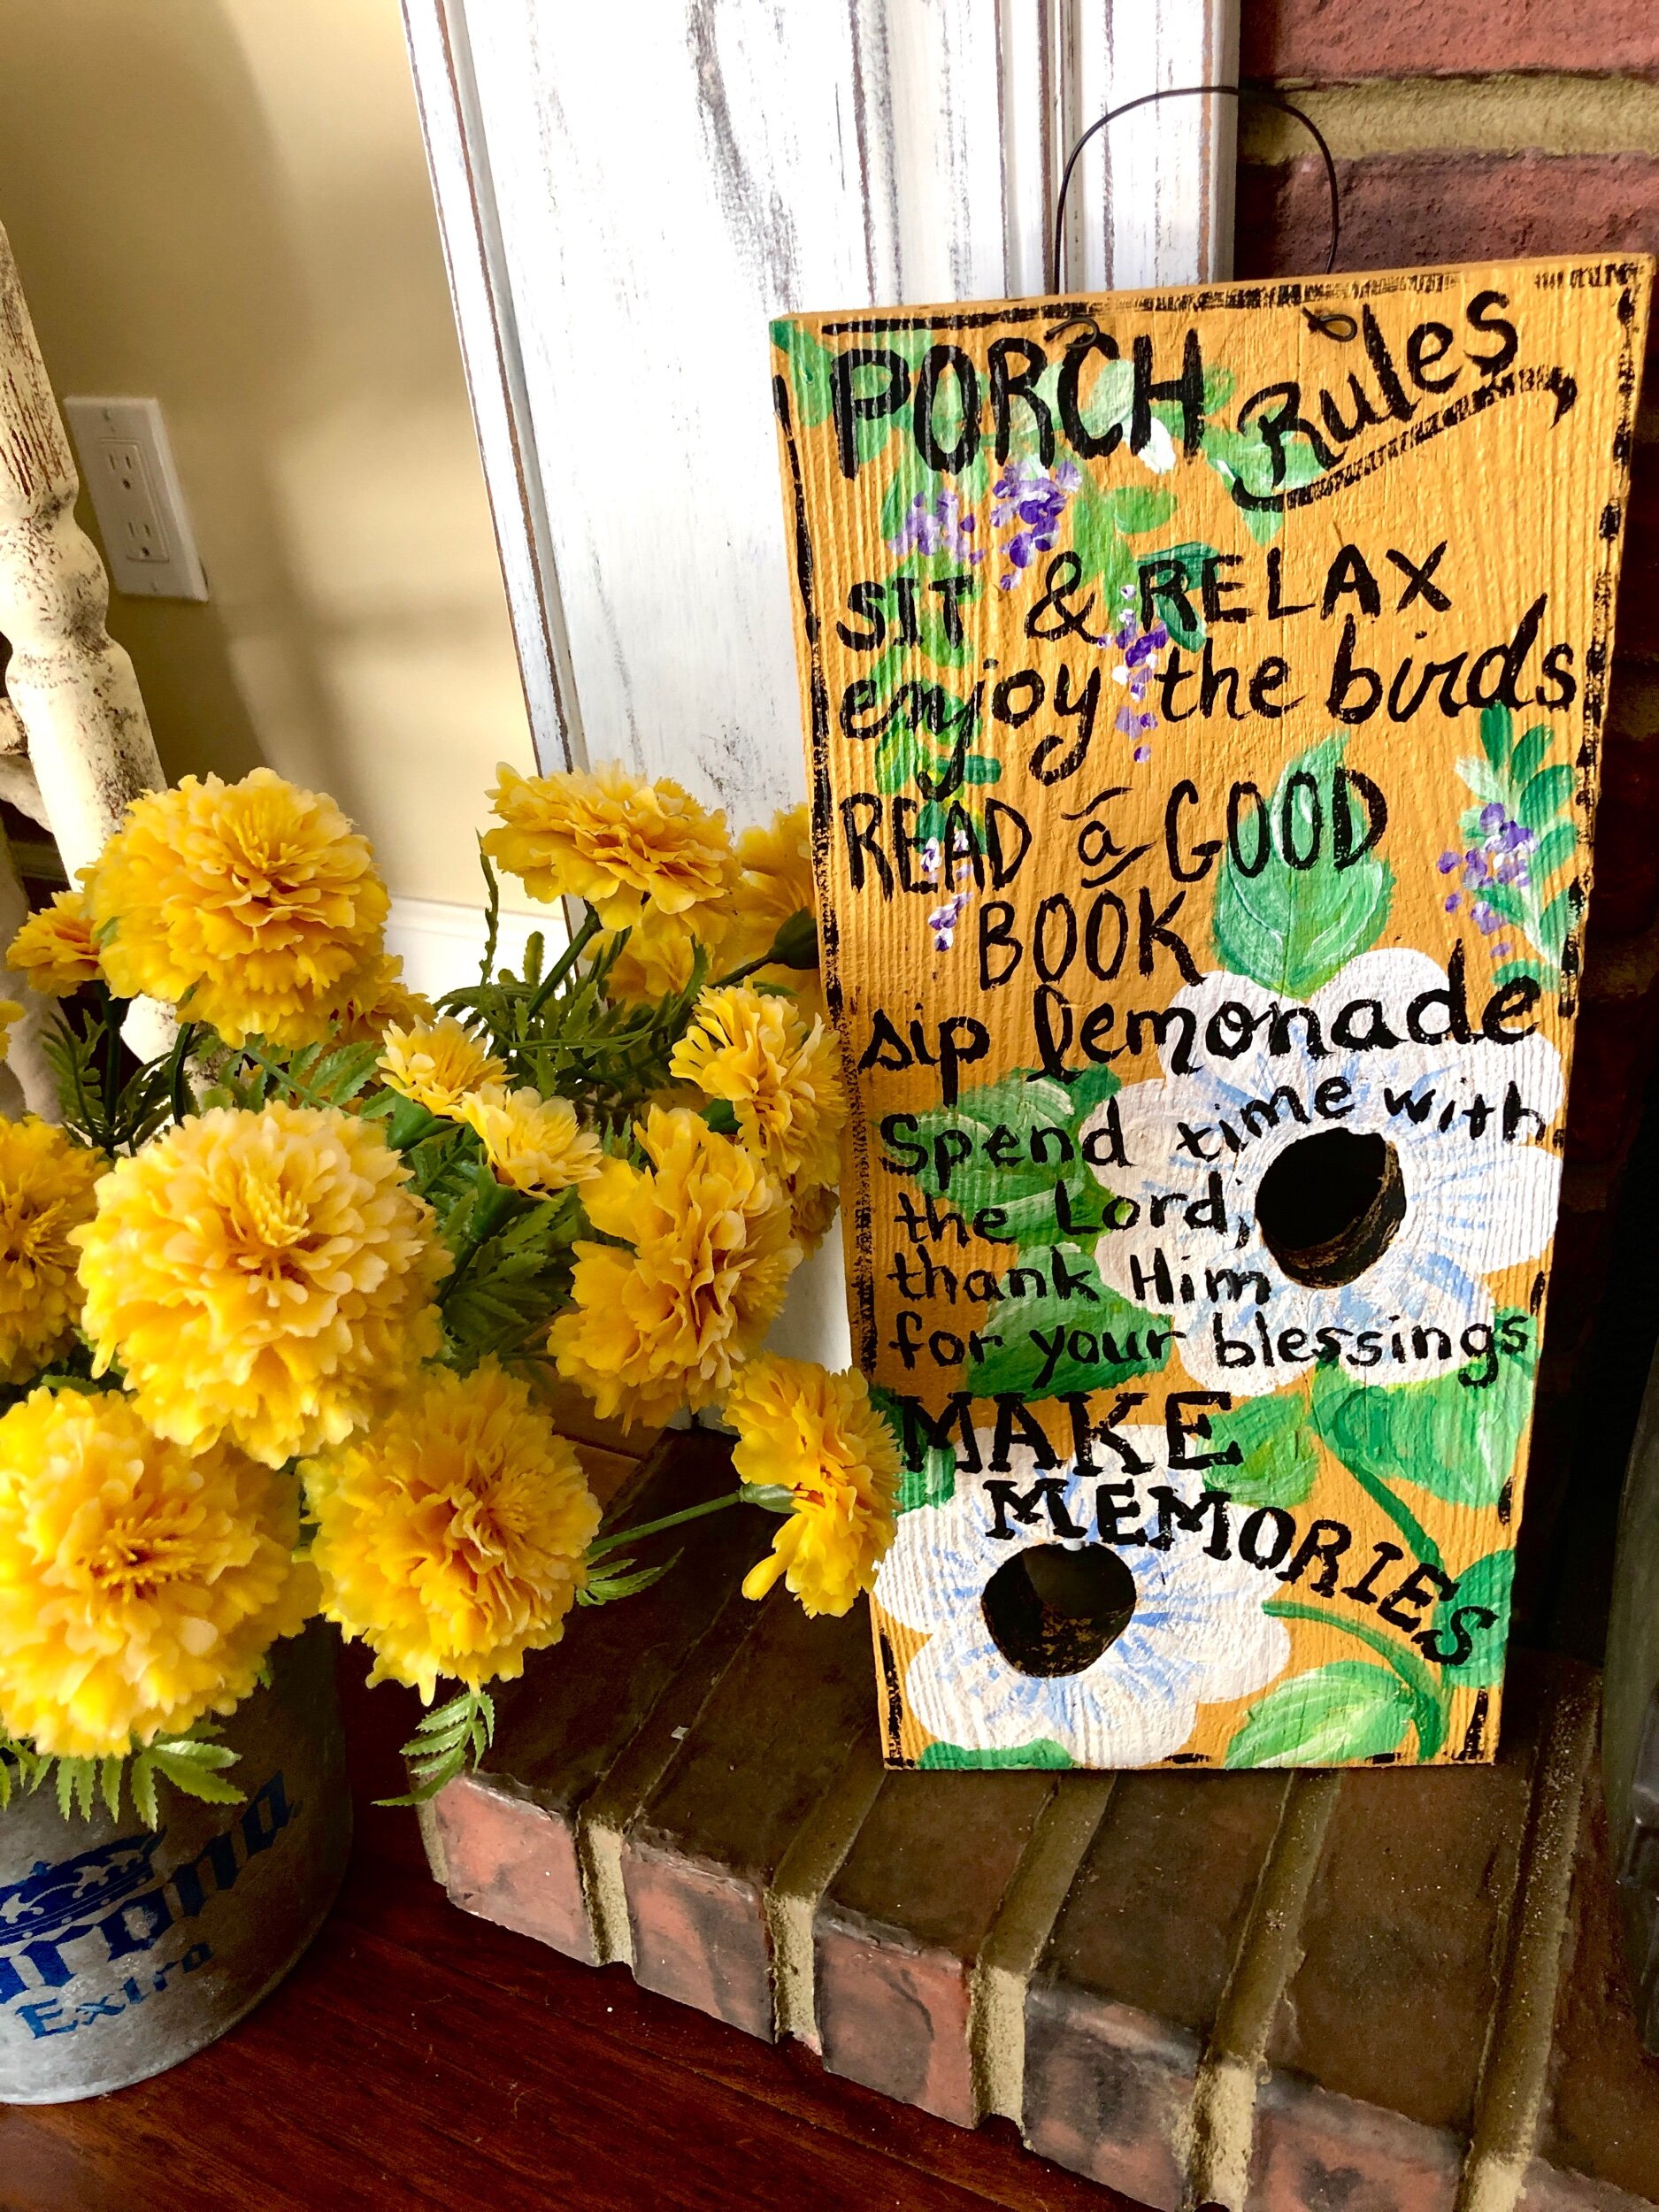 PORCH Rules
SIT & RELAX
enjoy the birds
READ a GOOD
BOOK
sip lemonade
Spend time with
the Lord;
thank Him
for your blessings
MAKE
MEMORIES
Extra